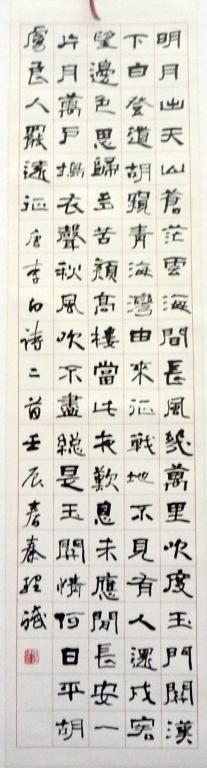 明月出天山蒼茫雲海間長風幾萬里吹度玉門關漢
下白登道胡窺青海灣由來征戰地不見有人還戍客
望邊色思歸多苦顏高樓當此夜歎息未應閒長安一
片月萬戶擣衣聲秋風吹不盡總是玉關情何日平胡
虜良人罷遠征唐李白詩二首壬辰春秦